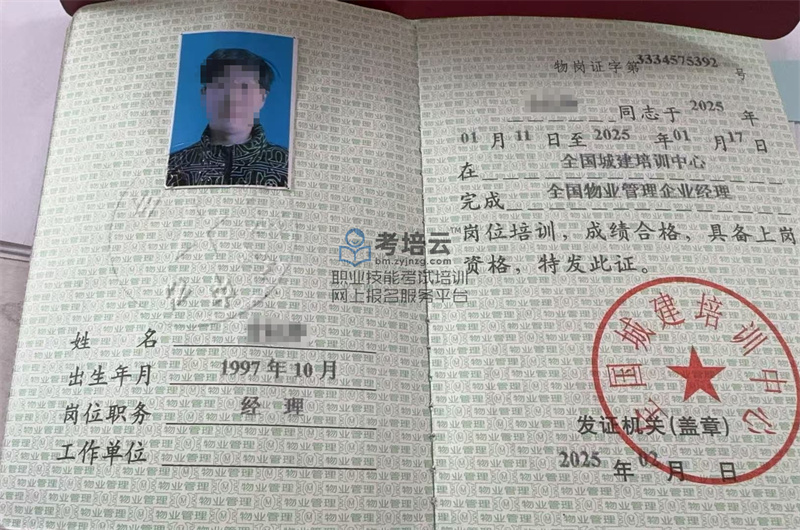 姓 名
出生年月 1997 年 10 月
岗位职务 经 理
工作单位
物岗证字第3334575392号
同志于 2025 年
01 月 11 日至 2025 年 01 月 17 日
在 全国城建培训中心
完成 全国物业管理企业经理
岗位培训，成绩合格，具备上岗
资格，特发此证。
全国城建培训中心
发证机关(盖章)
2025 年 02 月 日
考培云™
bm.zyjnzg.com
职业技能考试培训
网上报名服务平台
物业管理